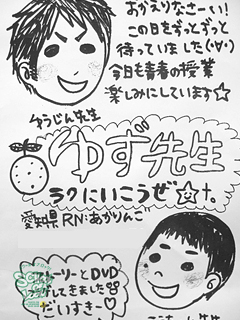 おかえりなさーい!
この日をずっとずっと
待っていました(・∀・)
今日も青春の授業
楽しみにしています☆
ゆうじん先生
ゆず先生
ラクにいこうぜ☆†。
愛知県 RN:あかりんご
ストーリーとDVD
してきました
だいすきー♡